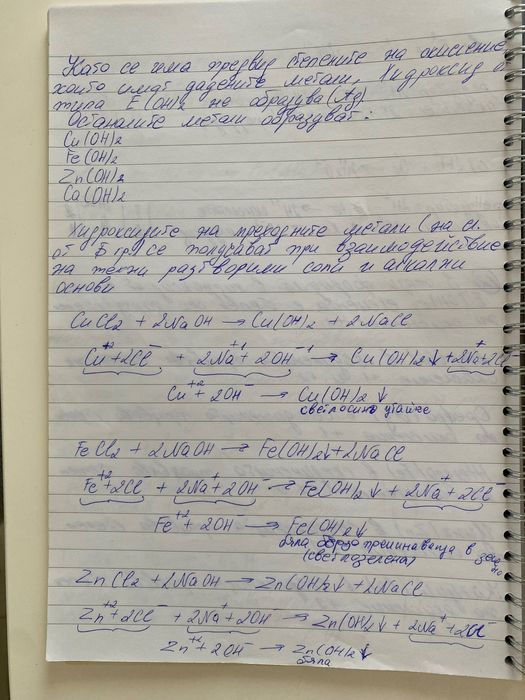 Като се има предвид степените на окисление
които имат дадените метали, Хидроксид от
типа E(OH)2 не образува (Ag).
Останалите метали образуват:
Cu(OH)2
Fe(OH)2
Zn(OH)2
Ca(OH)2
Хидроксидите на преходните метали (на ел.
от Б гр.) се получават при взаимодействие
на техни разтворими соли и алкални
основи
CuCl2 + 2NaOH → Cu(OH)2 + 2NaCl
Cu+2 + 2Cl- + 2Na+1 + 2OH-1 → Cu(OH)2↓ + 2Na+ + 2Cl-
Cu+2 + 2OH- → Cu(OH)2↓
светлосиня утайка
FeCl2 + 2NaOH → Fe(OH)2↓ + 2NaCl
Fe+2 + 2Cl- + 2Na+ + 2OH- → Fe(OH)2↓ + 2Na+ + 2Cl-
Fe+2 + 2OH → Fe(OH)2↓
бяла преминаваща в зелено
(светлозелена)
ZnCl2 + 2NaOH → Zn(OH)2↓ + 2NaCl
Zn+2 + 2Cl- + 2Na+ + 2OH- → Zn(OH)2↓ + 2Na+ + 2Cl-
Zn+2 + 2OH- → Zn(OH)2↓
бяла